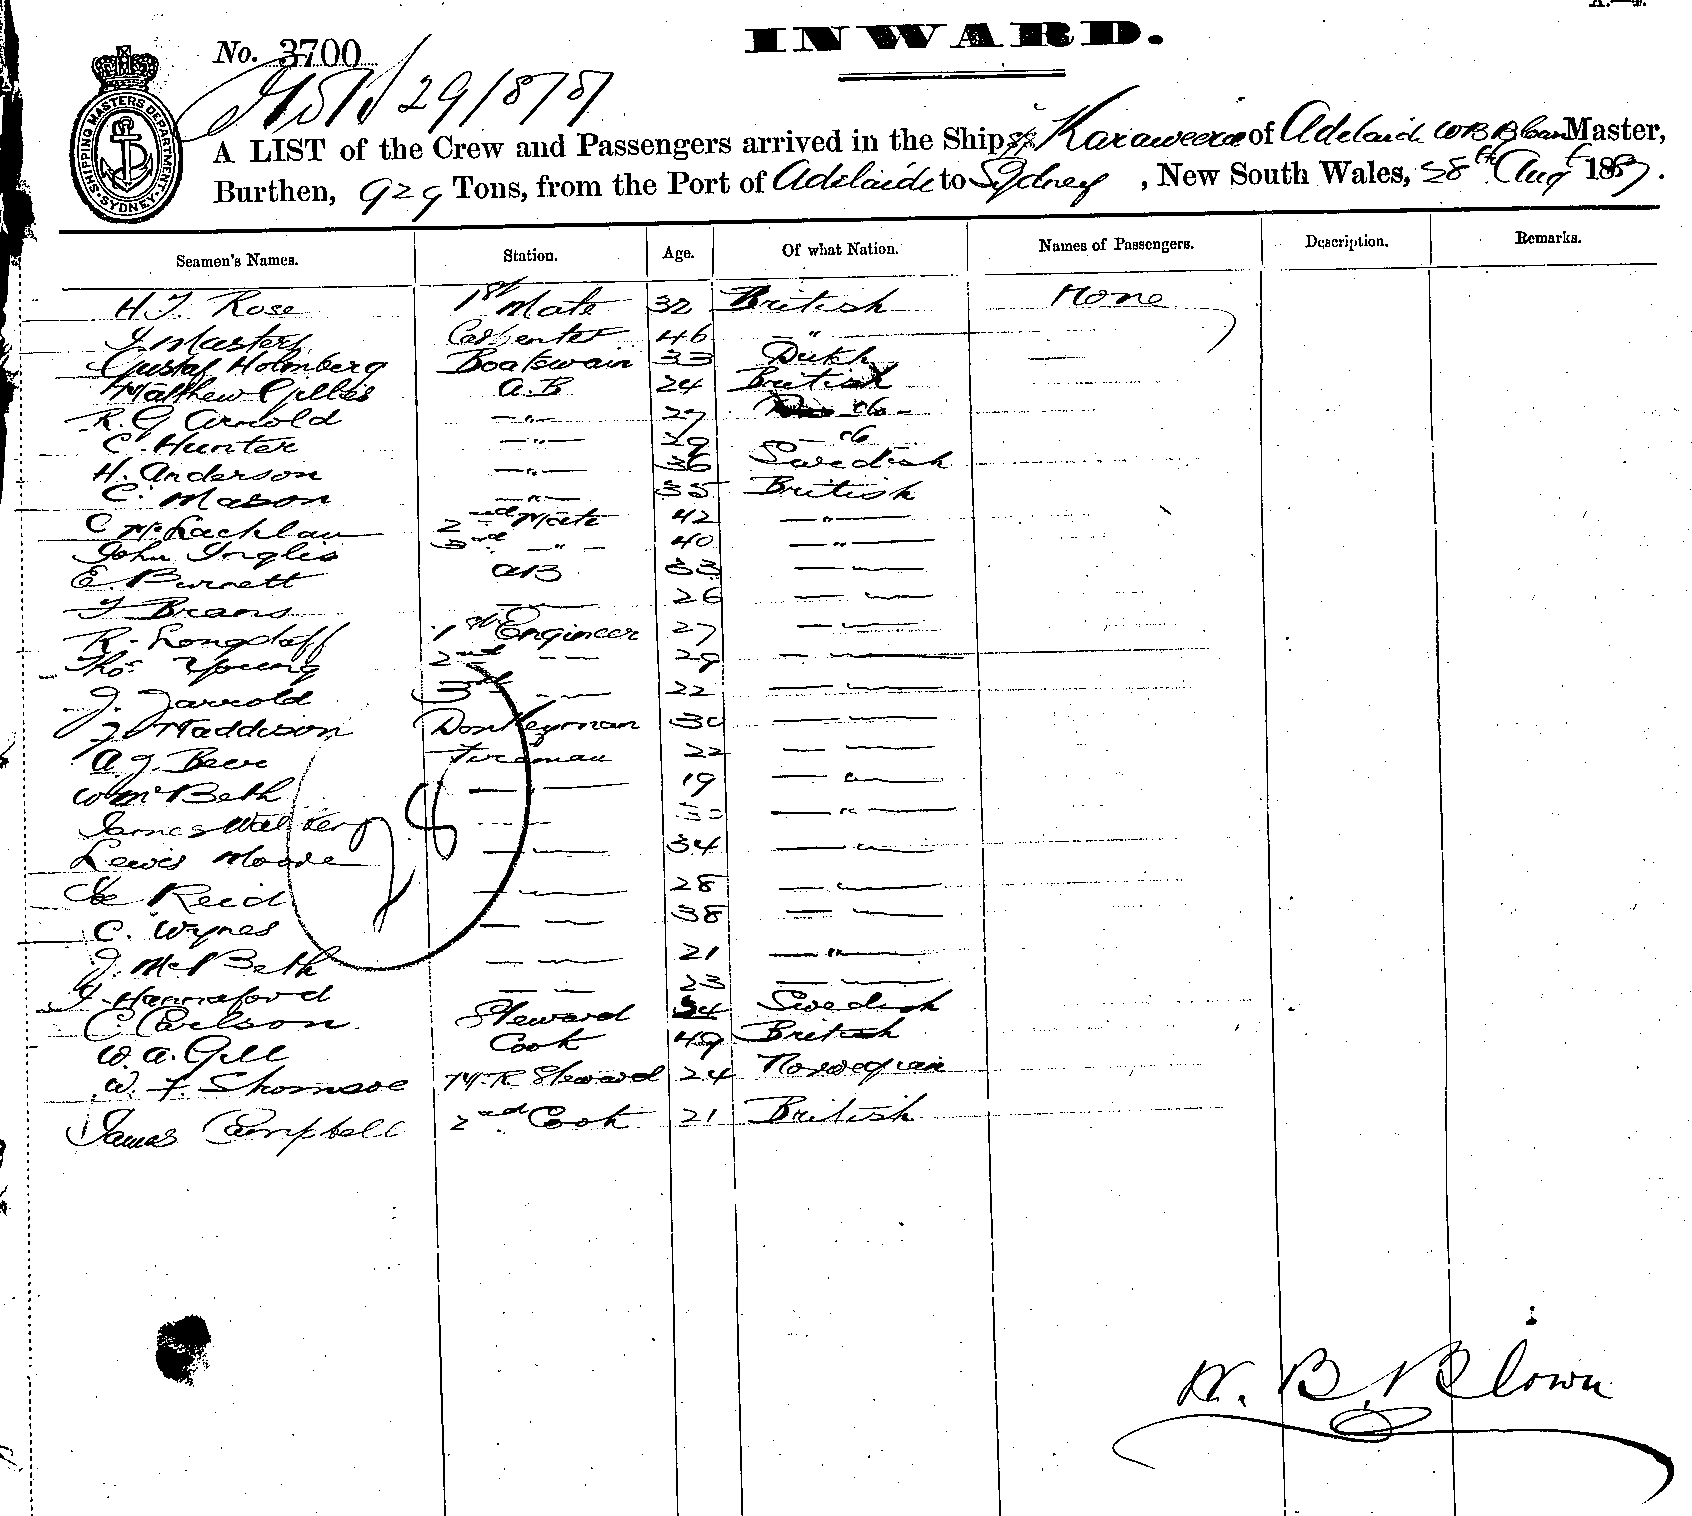 A.—4.
INWARD.
No. 3700
29/8/87
SHIPPING MASTERS DEPARTMENT SYDNEY
A LIST of the Crew and Passengers arrived in the Ship Karaweera of Adelaide Master,
Burthen, 929 Tons, from the Port of Adelaide to Sydney, New South Wales, 28th Augt 1887.
Seamen's Names. Station. Age. Of what Nation. Names of Passengers. Description. Remarks.
H. J. Rose 1st Mate 32 British None
J Masters Carpenter 46 — " —
Gustaf Holmberg Boatswain 33 Dutch —
Matthew Gillies A.B 24 British
R. G Arnold — " — 27 do
C. Hunter — " — 29 — do
H. Anderson — " — 36 Swedish
C. Mason — " — 35 British
C McLachlan 2nd Mate 42 — " —
John Inglis 3rd — " — 40 — " —
E. Burnett AB 33 — " —
J Brans — " — 26 — " —
R. Longstaff 1st Engineer 27 — " —
Thos Young 2nd — " — 29 — " —
J. Jarrold 3rd — " — 22 — " —
J Haddison Donkeyman 30 — " —
A J. Beer Fireman 22 — " —
Wm McBeth — " — 19 — " —
James — " — — " —
Lewis Moore — " — 34 — " —
Reid — " — 28 — " —
C. Wynes — " — 38 — " —
J. McBeth — " — 21 — " —
J. Hannaford — " — 23 — " —
C. Carlson Steward 34 Swedish
W. A. Gill Cook 49 British
W. F. Thomsoe M.R Steward 24 Norwegian
James Campbell 2nd Cook 21 British
28
W. B. Blown